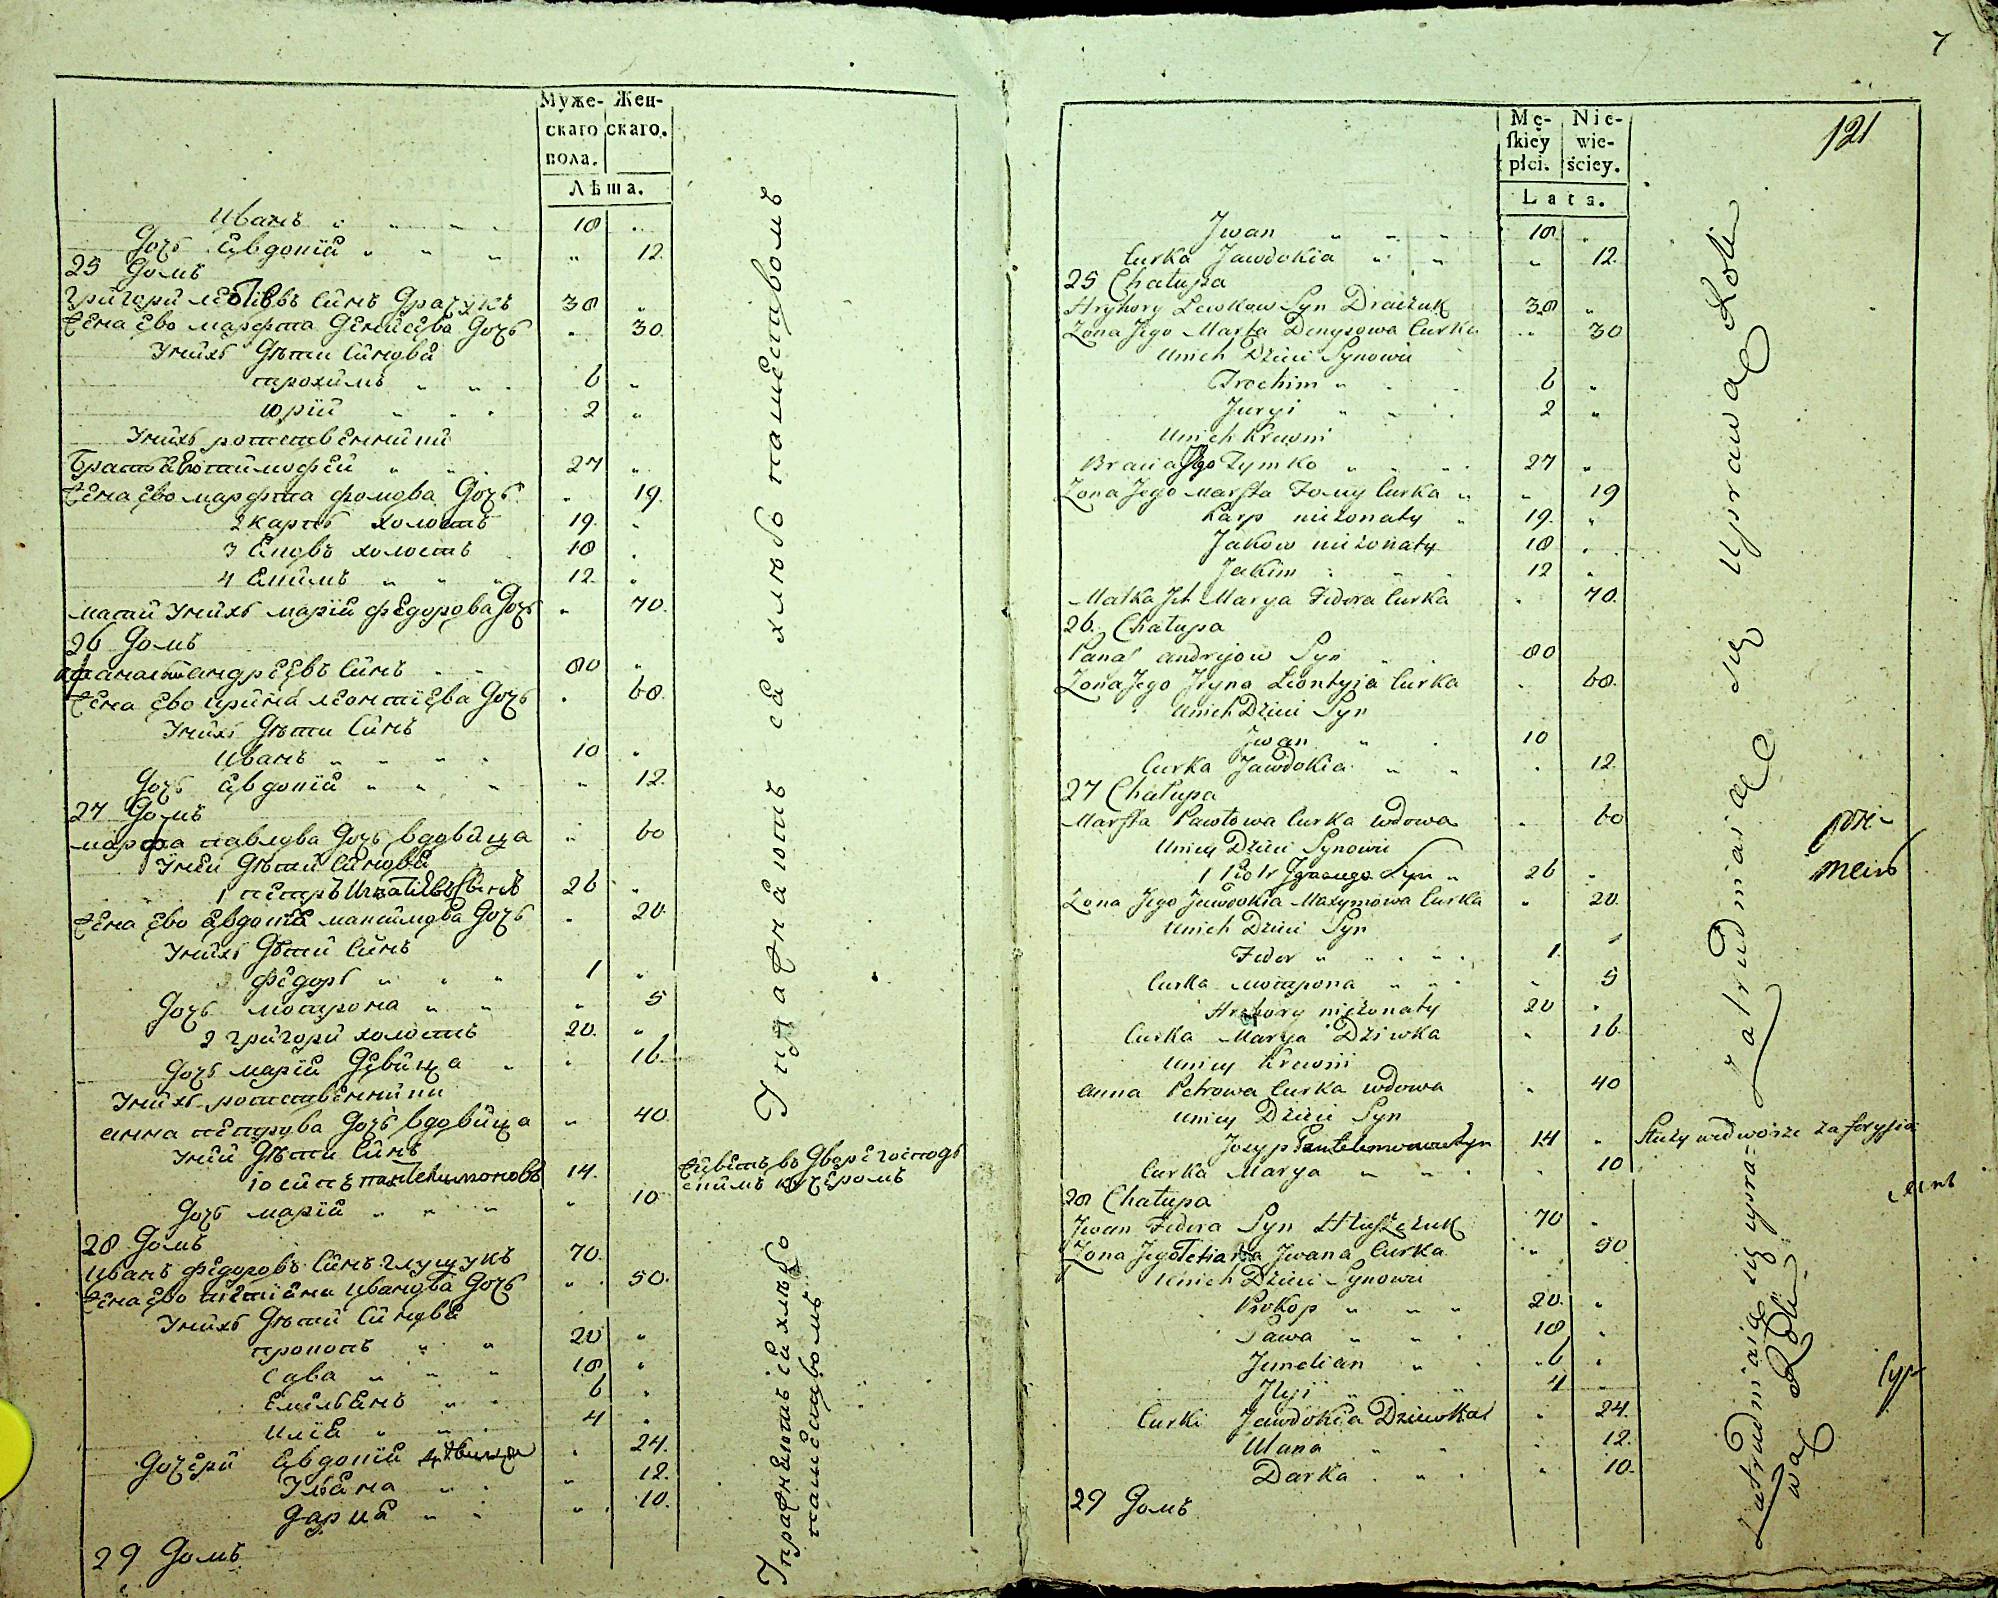 Муже- Жен-
скаго скаго.
пола.
Лѣта.
Иванъ 18
Дочь Авдотия 12
25 Домъ
Григори Синъ Драчукъ 38
Жена Ево Марфта Денисева Дочь 30
Унихъ Дѣти Синова
трохимъ 6
Юрий 2
Унихъ
тимофей 27
Жена ево марфта фомова Дочь 19
2 карпъ холостъ 19
3 Яковъ холостъ 18
4 Якимъ 12
мати Унихъ мария федорова Дочь 70
26 Домъ
Андреевъ Синъ 80
Жена Ево Ирина леонтиева Дочь 68
Унихъ Дѣти Синъ
Иванъ 10
Дочь Авдотия 12
27 Домъ
марфа павлова Дочь вдовица 60
Уней Дѣти Синова
1 петръ Синъ 26
Жена Ево Авдотия максимова Дочь 20
Унихъ Дѣти Синъ
Федоръ 1
Дочь мотрона 5
2 Григори холостъ 20
Дочь мария Девица 16
Унихъ
анна петрова Дочь вдовица 40
Уней Дѣти Синъ
иосипъ пантелимоновъ 14
Дочь мария 10
28 Домъ
Иванъ Федоровъ Синъ Глущукъ 70
Жена Ево Иванова Дочь 50
Унихъ Дѣти Синова
прокопъ 20
Сава 18
Емильянъ 6
Илия 4
Дочери Авдотия 24
Уляна 12
Дария 10
29 Домъ
хлѣбопашествомъ
хлѣбо
пашеством
7
121
Mę- Nie-
skiey wie-
płci. ściey.
Lata.
Jwan 18
Curka Jawdokia 12
25 Chałupa
Hryhory Lewkow Syn Draczuk 38
Zona Jego Marta Denysowa Curka 30
Unich Dzieci Synowie
Trochim 6
Juryi 2
Unich Krewni
Jego Tymko 27
Zona Jego Marfta Fomy Curka 19
Karp nieżonaty 19
Jakow nieżonaty 18
Jakim 12
Matka Marya Fedora Curka 70
26 Chałupa
Panas andryjow Syn 80
Zona Jego Jryna Leontyja Curka 68
Unich Dzieci Syn
Jwan 10
Curka Jawdokia 12
27 Chałupa
Marfta Pawłowa Curka wdowa 60
Uniey Dzieci Synowie
1 Piotr Syn 26
Zona Jego Jawdokia Maxymowa Curka 20
Unich Dzieci Syn
Fedor 1
Curka motrona 5
Hrehory nieżonaty 20
Curka Marya Dziwka 16
Uniey Krewni
anna Petrowa Curka wdowa 40
Uniey Dzieci Syn
Jozyp Pantelimonow Syn 14 Służy we dworze za
Curka Marya 10
28 Chałupa
Jwan Fedora Syn Hluszczuk 70
Zona Jego Tetiana Jwana Curka 50
Unich Dzieci Synowie
Prokop 20
Sawa 18
Jmelian 6
Jlyi 4
Curki Jawdokia Dziewka 24
Ulana 12
Darka 10
29 Домъ
Zatrudniaiące się Uprawą Roli
Zatrudniaią się upra=
wą Roli